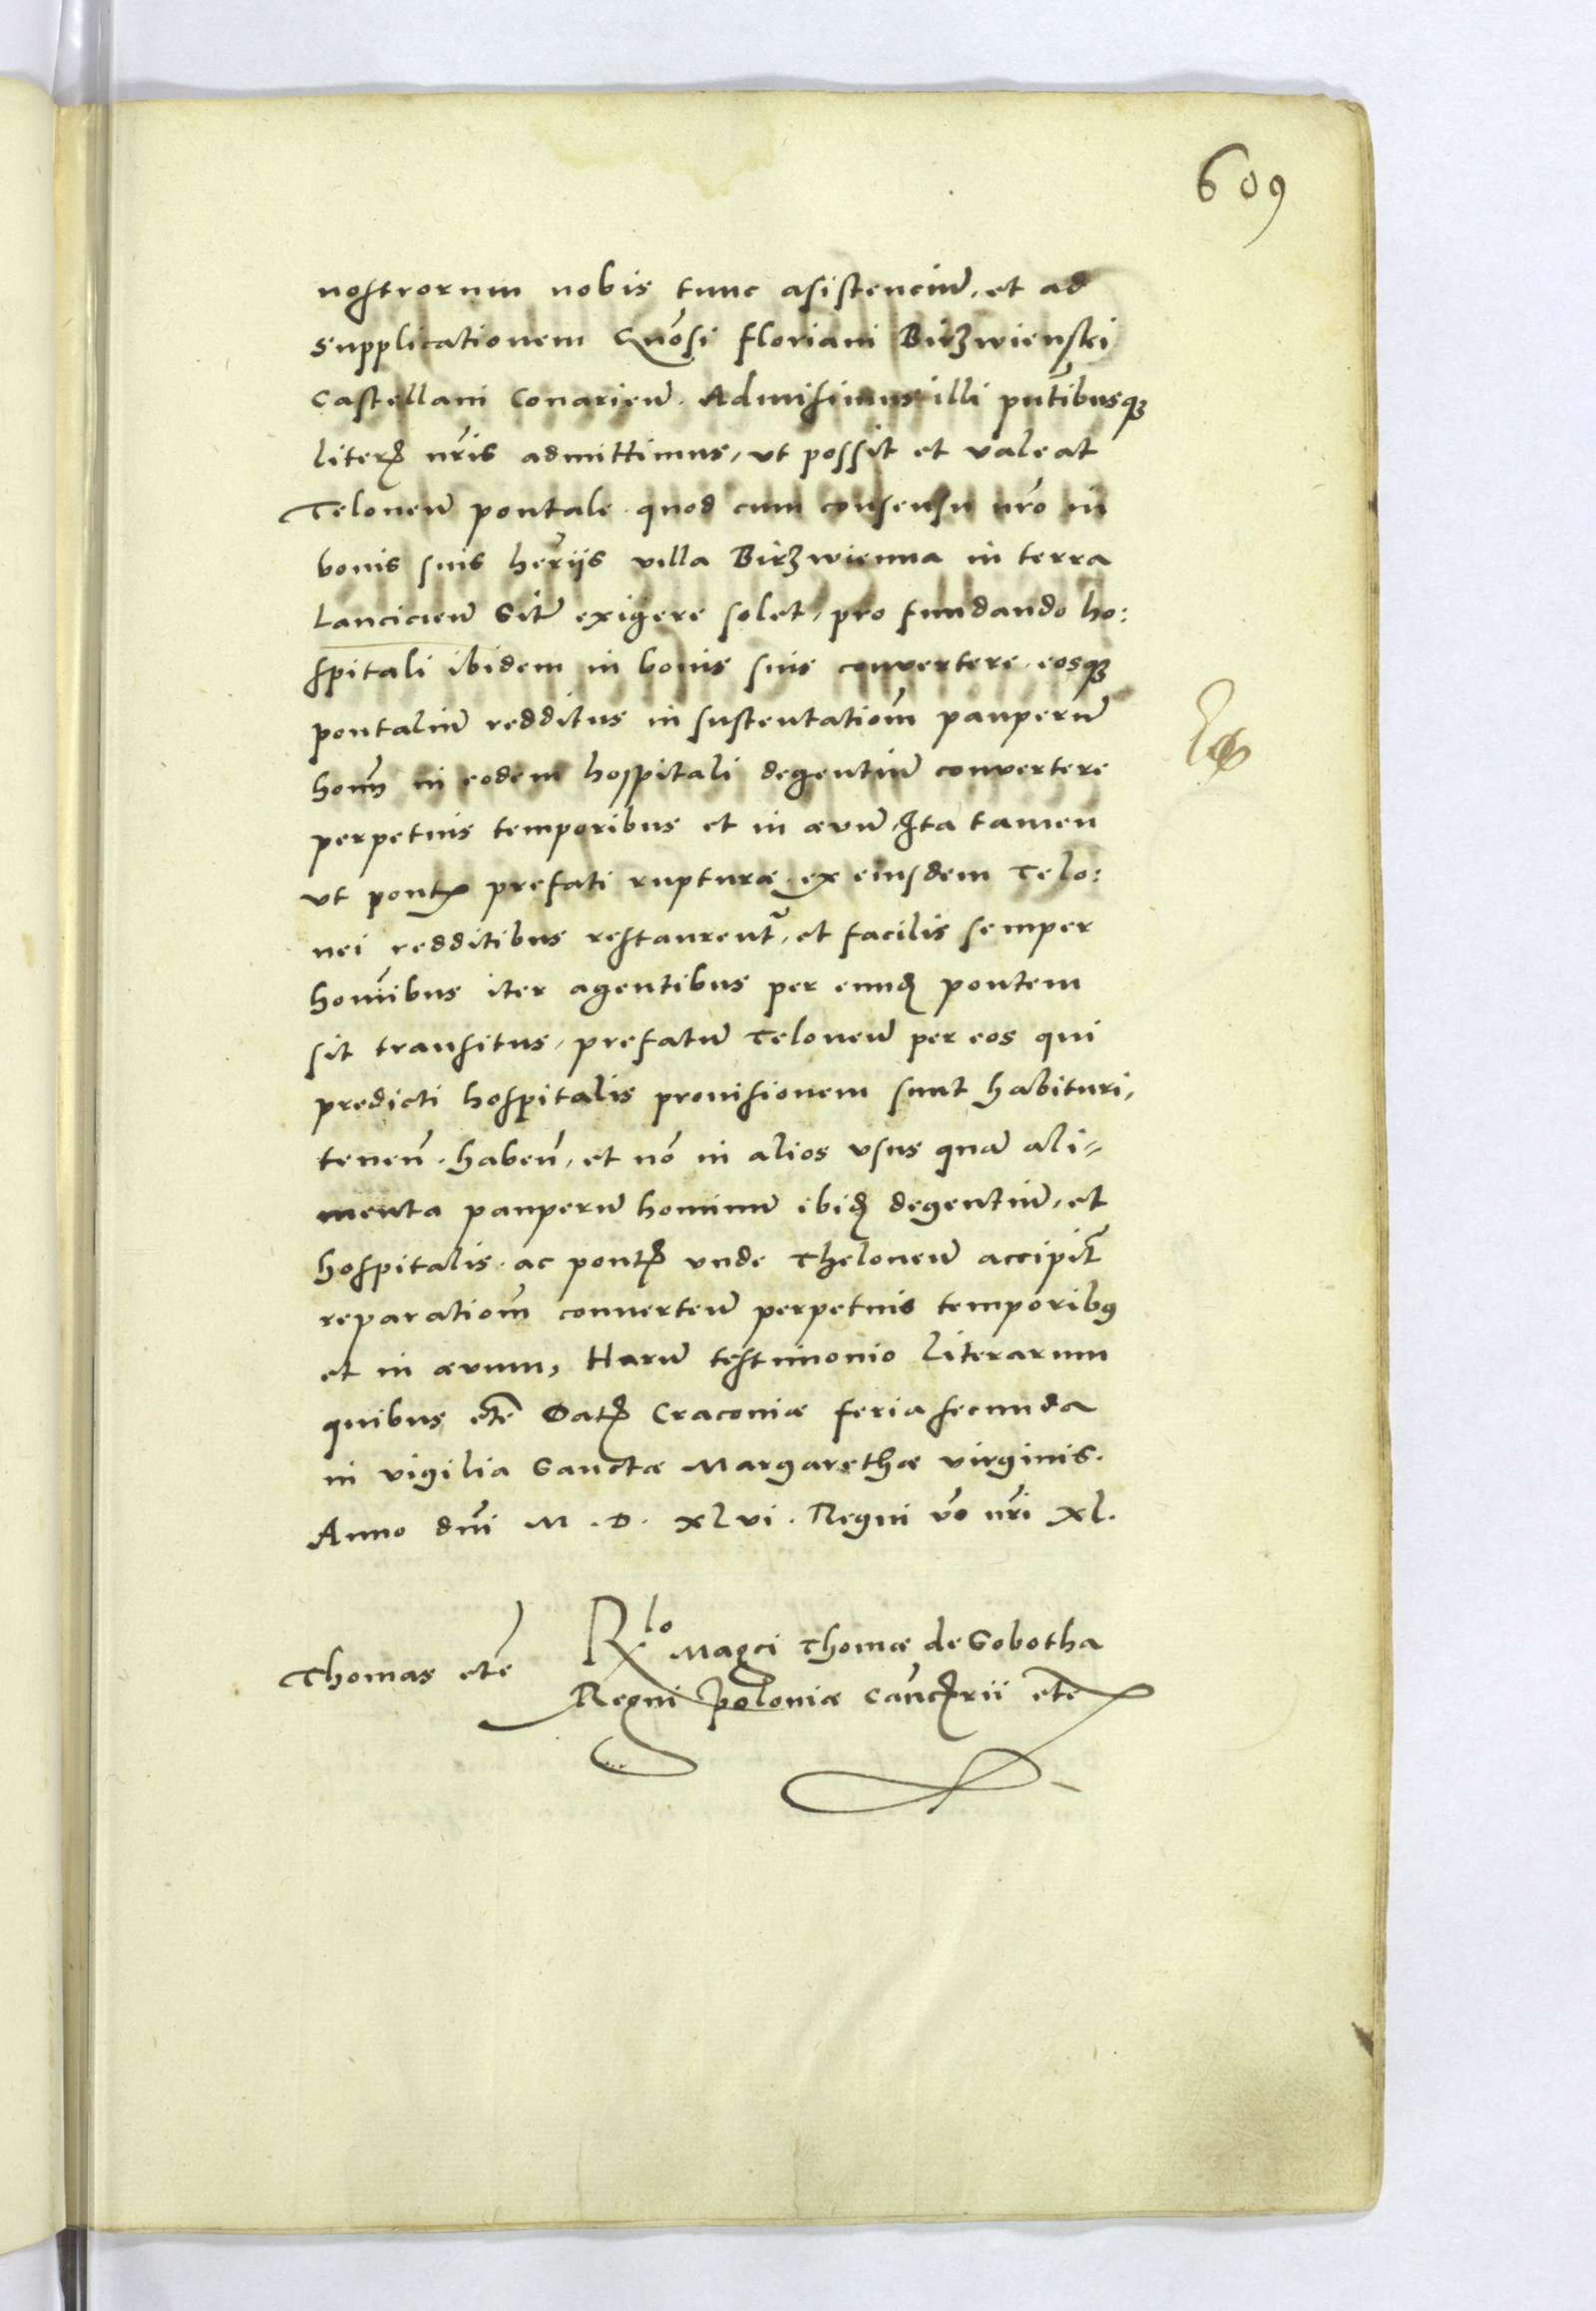 609
nostrorum nobis tunc asistenciũ, et ad
supplicationem Gñosi Floriani Birzwienski
Castellani Conarieñ. Admisimus illi pñtibusqꝫ
literꝭ nr̃is admittimus, ut possit et valeat
Teloneũ pontale quod cum consensu nr̃o in
bonis suis hẽriis villa Birzwienna in terra
Lancicieñ Sitis exigere solet, pro fundando ho:
spitali ibidem in bonis suis convertere, eosqꝫ
pontaliũ redditus in sustentationẽ pauperũ
homĩ in eodem hospitali degentiũ convertere
perpetuis temporibus et in aevũ, Ita tamen
ut pontꝭ prefati rupturae ex eiusdem Telo:
nei redditibus restaurent̃, et facilis semper
homĩbus iter agentibus per eundꝫ pontem
sit transitus, prefatũ Teloneũ per eos qui
predicti hospitalis provisionem sunt habituri,
teneñ. habeñ, et nõ in alios usus quã ali=
menta pauperũ hominũ ibidꝫ degentiũ, et
hospitalis ac pontꝭ unde Theloneũ accipit̃
reparationẽ converteñ perpetuis temporibꝰ
et in aevum, Harũ testimonio literarum
quibus etc̃ Datꝭ Cracoviae feria secunda
in vigilia Sanctae Margarethae virginis.
Anno dñi M. D. XLvi. Regni v̄o nr̃i XL.
Thomas etc̃
Rlo Magci Thomae de Sobotha
Regni Poloniae Cancꝭrii etc̃